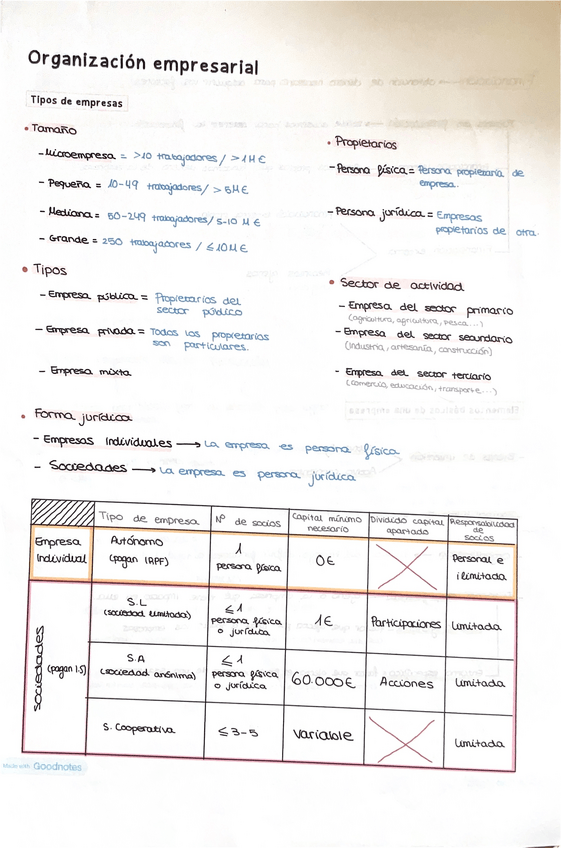 Organización empresarial
Tipos de empresas
• Tamaño
- Microempresa = >10 trabajadores / >1M €
- Pequeña = 10-49 trabajadores / > 5M€
- Mediana = 50-249 trabajadores / 5-10 M €
- Grande = 250 trabajadores / ≤10M €
• Propietarios
- Persona física = Persona propietaria de
empresa.
- Persona jurídica = Empresas
propietarias de otra.
• Tipos
- Empresa pública = Propietarios del
sector público
- Empresa privada = Todos los propietarios
son particulares.
- Empresa mixta
• Sector de actividad
- Empresa del sector primario
(agricultura, agricultura, pesca...)
- Empresa del sector secundario
(industria, artesanía, construcción)
- Empresa del sector terciario
(comercio, educación, transporte...)
• Forma jurídica
- Empresas individuales → La empresa es persona física
- Sociedades → La empresa es persona jurídica
Tipo de empresa
Nº de socios
Capital mínimo
necesario
Dividido capital
apartado
Responsabilidad
de
socios
Empresa
Individual
Autónomo
(pagan IRPF)
1
persona física
0€
Personal e
ilimitada
Sociedades
(pagan I.S)
S.L
(sociedad limitada)
≤1
persona física
o jurídica
1€
Participaciones
Limitada
S.A
(sociedad anónima)
≤ 1
persona física
o jurídica
60.000€
Acciones
Limitada
S. Cooperativa
≤3-5
variable
Limitada
Made with Goodnotes